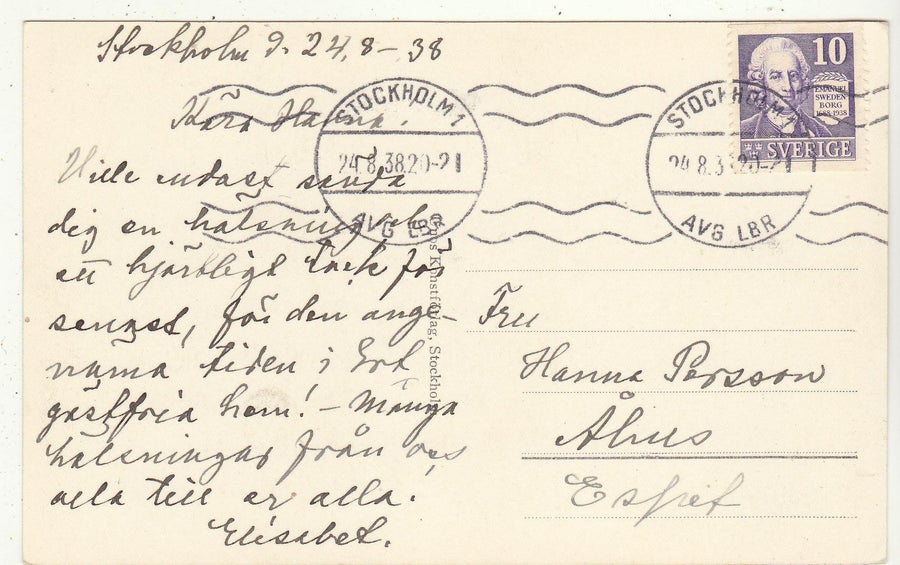 Stockholm d. 24.8-38
Kära Hanna.
Ville endast sända
dig en hälsning och
ett hjärtligt tack för
senast, för den ange-
näma tiden i Ert
gästfria hem! - Många
hälsningar från oss
alla till er alla.
Elisabet.
Konstförlag, Stockholm
STOCKHOLM 1
24.8.38.20-21
AVG LBR
STOCKHOLM 1
24.8.38.20-21
AVG LBR
10
EMANUEL
SWEDEN
BORG
1688-1938
SVERIGE
Fru
Hanna Persson
Åhus
Espet